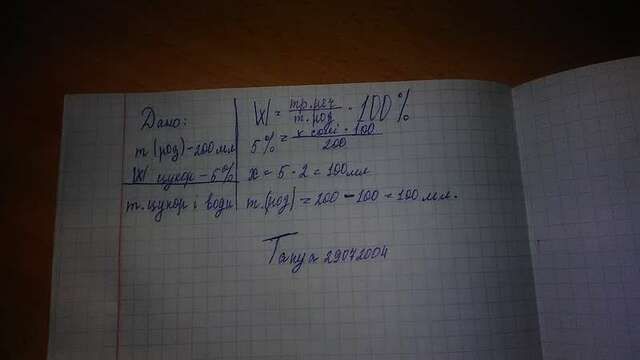 Дано:
m (род) - 200 мл
W цукро - 5%
m. цукор і води
W = mр.реч / m.род · 100%
5% = x солі · 100 / 200
x = 5 · 2 = 100 мл
m.(род) = 200 - 100 = 100 мл.
Tanya 29072004